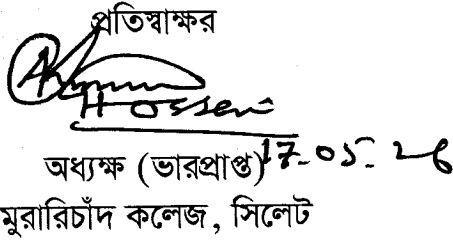 প্রতিস্বাক্ষর
Hossen
অধ্যক্ষ (ভারপ্রাপ্ত) 17-05-26
মুরারিচাঁদ কলেজ, সিলেট